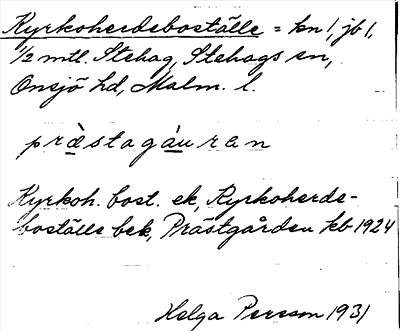 Kyrkoherdeboställe = kn 1, jb 1,
1/2 mtl. Stehag, Stehags sn,
Onsjö hd, Malm. l.
præ̀stagáuran
Kyrkoh. bost. ek, Kyrkoherde-
boställe bek, Prästgården kb 1924
Helga Persson 1931